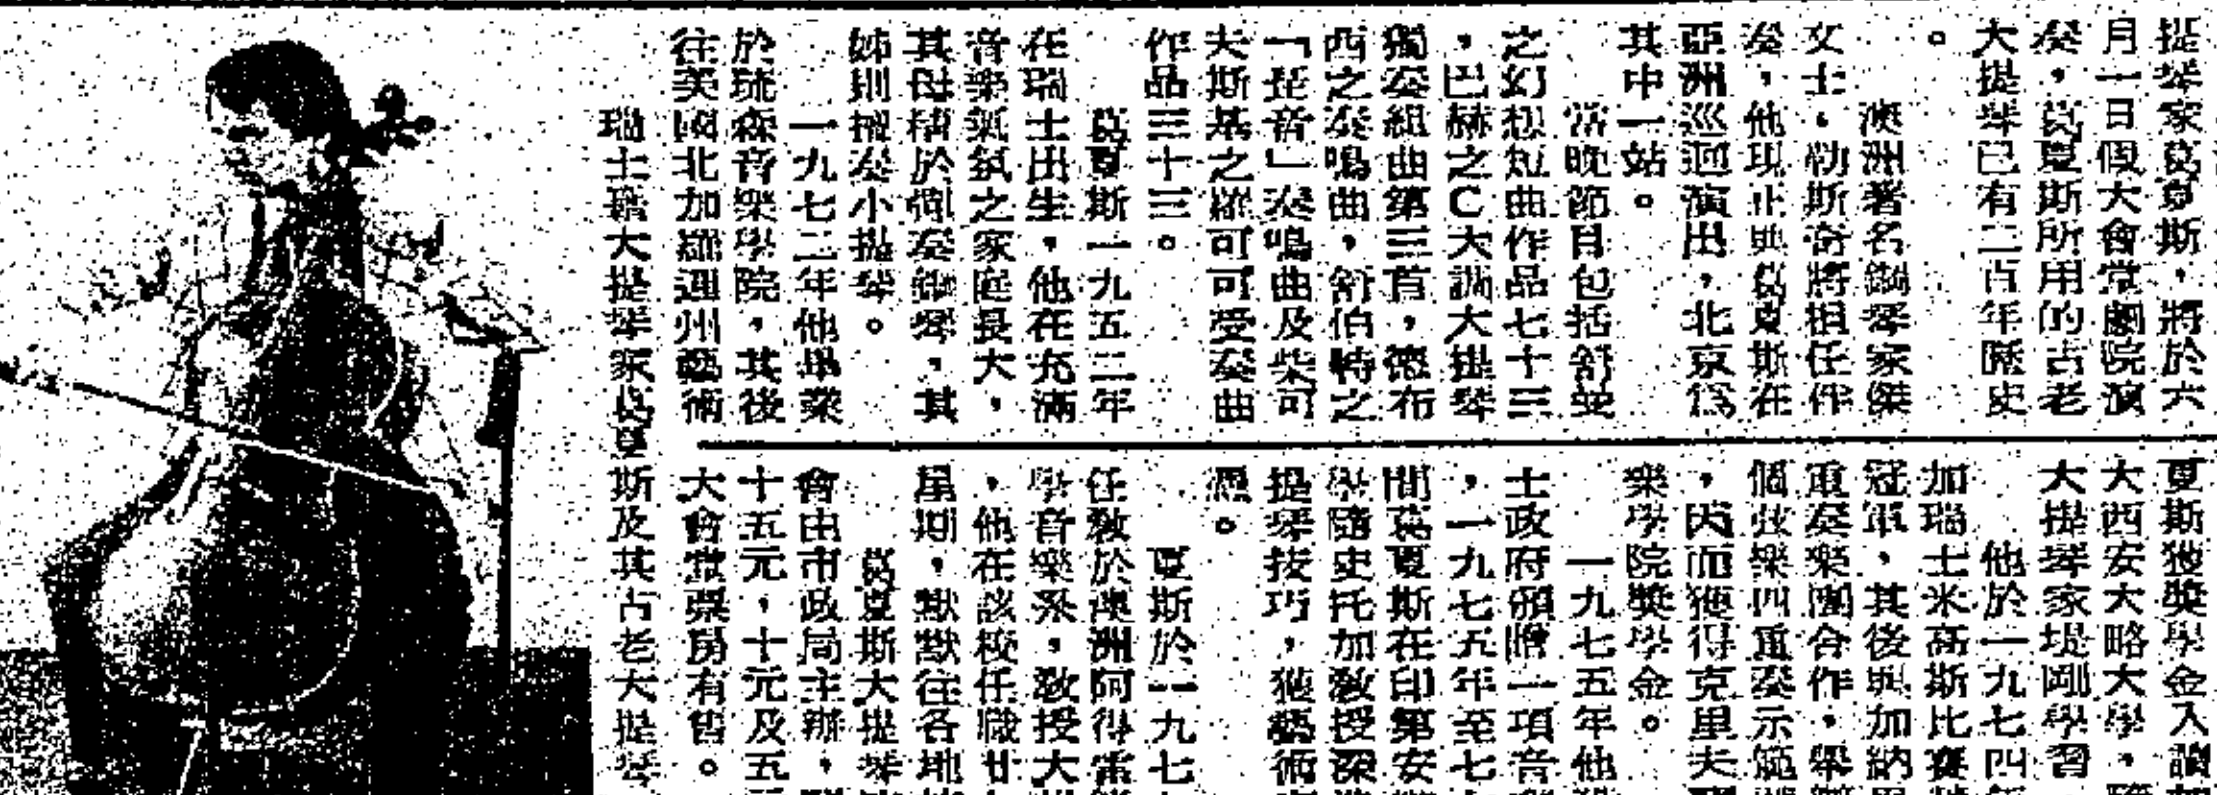 提琴家葛夏斯，將於六
月一日假大會堂劇院演
奏，葛夏斯所用的古老
大提琴已有二百年歷史
。
澳洲著名鋼琴家傑
女士．勒斯奇將担任伴
奏，他現正與葛夏斯在
亞洲巡迴演出，北京爲
其中一站。
當晚節目包括舒曼
之幻想短曲作品七十三
，巴赫之C大調大提琴
獨奏組曲第三首，德布
西之奏鳴曲，舒伯特之
「琵音」奏鳴曲及柴可
夫斯基之羅可可受奏曲
作品三十三。
葛夏斯一九五二年
在瑞士出生，他在充滿
音樂氣氛之家庭長大，
其母精於彈奏鋼琴，其
姊則擅奏小提琴。
一九七二年他畢業
於琉森音樂學院，其後
往美國北加羅連州藝術
夏斯獲獎學金入讀
大西安大略大學，
大提琴家堤剛學習
他於一九七四
加瑞士米高斯比賽
冠軍，其後與加納
重奏樂團合作，舉
個弦樂四重奏示範
，因而獲得克里夫
樂學院獎學金。
一九七五年他
士政府頒贈一項音
，一九七五年至七
間葛夏斯在印第安
學隨史托加教授深
提琴技巧，獲藝術
憑。
夏斯於一九七
任敎於澳洲阿得雷
學音樂系，敎授大
，他在該校任職廿
星期，默默往各地
葛夏斯大提琴
會由市政局主辦，
十五元，十元及五
大會堂票房有售。
瑞士籍大提琴家葛夏斯及其古老大提琴